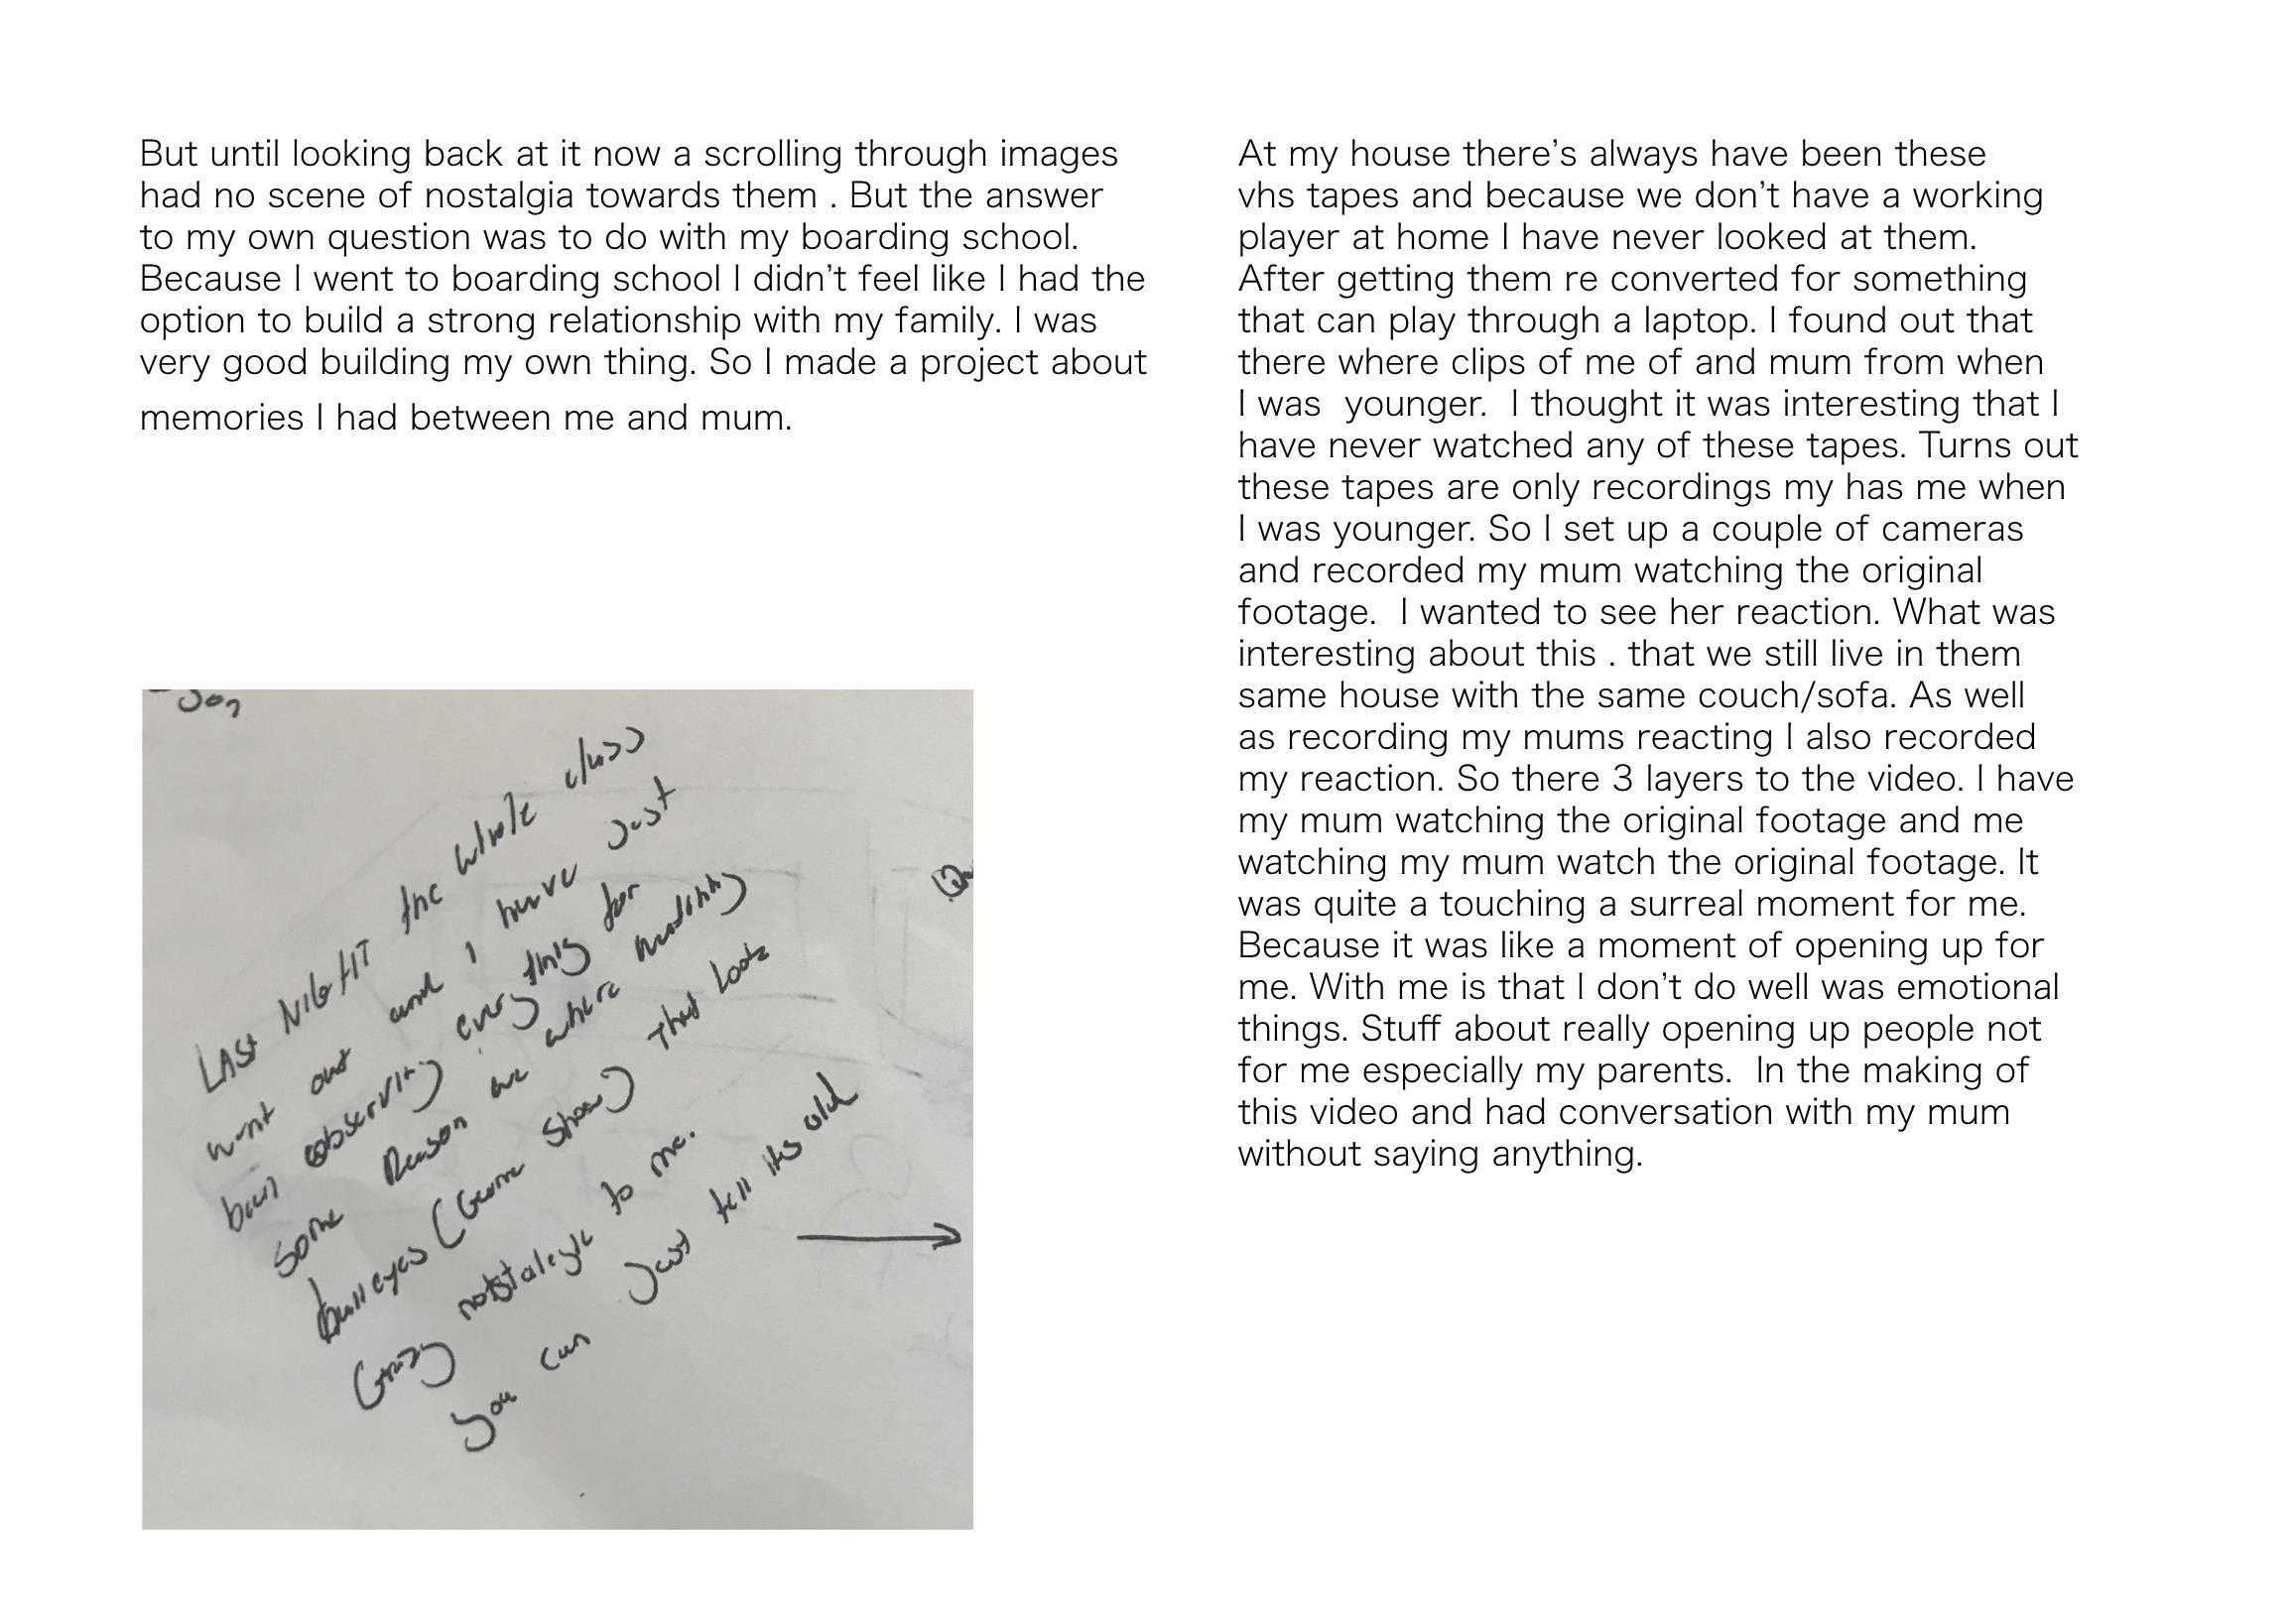 But until looking back at it now a scrolling through images
had no scene of nostalgia towards them . But the answer
to my own question was to do with my boarding school.
Because I went to boarding school I didn’t feel like I had the
option to build a strong relationship with my family. I was
very good building my own thing. So I made a project about
memories I had between me and mum.
LASt NIGHT the whole class
went out and I have just
been observing every thing for
some Reason we where watching
bull eyes (Game Show) That look
Crazy notstalegic to me.
You can Just tell its old
At my house there’s always have been these
vhs tapes and because we don’t have a working
player at home I have never looked at them.
After getting them re converted for something
that can play through a laptop. I found out that
there where clips of me of and mum from when
I was  younger.  I thought it was interesting that I
have never watched any of these tapes. Turns out
these tapes are only recordings my has me when
I was younger. So I set up a couple of cameras
and recorded my mum watching the original
footage.  I wanted to see her reaction. What was
interesting about this . that we still live in them
same house with the same couch/sofa. As well
as recording my mums reacting I also recorded
my reaction. So there 3 layers to the video. I have
my mum watching the original footage and me
watching my mum watch the original footage. It
was quite a touching a surreal moment for me.
Because it was like a moment of opening up for
me. With me is that I don’t do well was emotional
things. Stuff about really opening up people not
for me especially my parents.  In the making of
this video and had conversation with my mum
without saying anything.